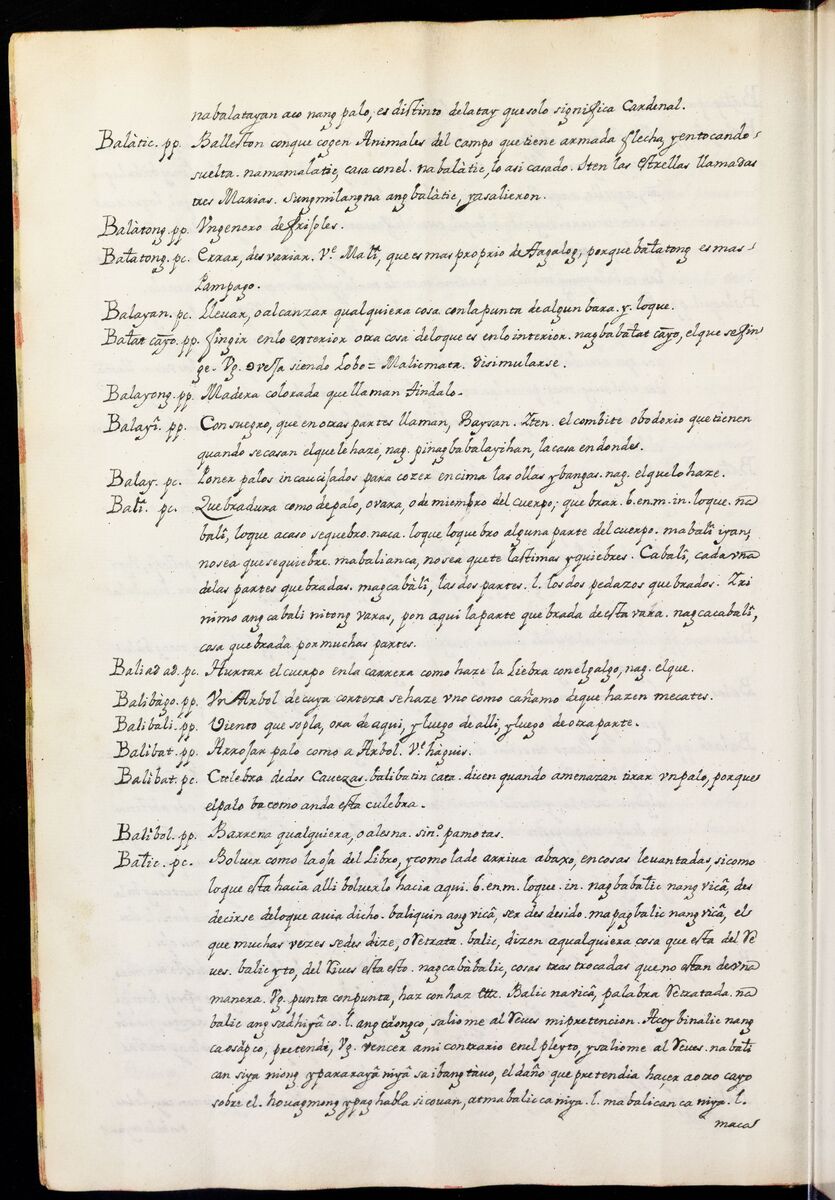 nabalatayan aco nang palo, es distinto delatay que solo significa Cardenal.
Balàtic. pp. Balleston conque cogen Animales del campo que tiene armada flecha, y entocando
suelta. namamalatic, casa con el. na balàtic, lo asi casado. Iten las estrellas llamadas
tres Marias. Sungmilang na ang balàtic, ya salieron.
Balàtong. pp. Vn genero de frisoles.
Balatong. pc. Errar, des variar. Ve. Mali, que es mas proprio de Tagalog, porque balatong es mas
Pampago.
Balayan. pc. Lleuar, o alcanzar qualquiera cosa con la punta de algun bara. y. loque.
Balat cayo. pp. fingir en lo exterior otra cosa de loque es en lo interior. nag babalat cayo, el que se fin
ge. Vg. oveja siendo Lobo = Malicmata. disimularse.
Balayong. pp. Madera colorada que llaman Tindalo.
Balayî. pp. Con suegro, que en otras partes llaman, Baysan. Iten. el combite o bodorio que tienen
quando se casan el que le haze, nag. pinag babalayihan, la casa en donde s.
Balay. pc. Poner palos in caucisados para cozer encima las ollas y bangas. nag. el que lo haze.
Balî. pc. Quebradura como de palo, o vara, o de miembro del cuerpo; que brar. 6. en. m. in. loque. na
balî, loque acaso se quebro. naca. loque loque bro alguna parte del cuerpo. mabalî iyan,
no sea que se quiebre. mabalian ca, no sea que te lastimas y quiebres. Cabalî, cada vña
de las partes que bradas. magcabàlî, las dos partes. l. los dos pedazos que brados. Iri
nimo ang cabali nitong varas, pon aqui la parte que brada de esta vara. nagcacabalî,
cosa que brada por muchas partes.
Baliad ad. pc. Hurtar el cuerpo en la carrera como haze la Liebra con el galgo, nag. el que.
Balibàgo. pp. Vn Arbol de cuya corteza se haze vno como cañamo de que hazen mecates.
Balibàli. pp. Viento que sopla, ora de aqui, y luego de alli, y luego de otra parte.
Balibat. pp. Arrojar palo como a Arbol. Ve. hàguis.
Balibat. pc. Culebra de dos Cauezas. balibatin cata. dicen quando amenazan tirar vn palo, porque
el palo ba como anda esta culebra.
Balibol. pp. Barrena qualquiera, o alesna. sino. pamotas.
Balic. pc. Boluer como la oja del Libro, y como lade arriua abaxo, en cosas levantadas, si como
lo que esta hacia alli boluerlo hacia aqui. 6. en. m. loque. in. nag babalic nang vicâ, des
decirse de loque auia dicho. baliquin ang vicâ, ser des desido. mapagbalic nang vicâ, el
que muchas vezes se des dize, o Retrata. balic, dizen a qualquiera cosa que esta del Re
ues. balic yto, del Reves esta esto. nagcabàbalic, cosas tras trocadas que no estan de vña
manera. Vg. punta con punta, haz con haz Ettz. Balic na vicâ, palabra Retratada. na
balic ang sadhiyâ co. l. ang càongco, salio me al Reves mi pretencion. Acoy binalic nang
ca osàpco, pretendi, Vg. vencer a mi contrario en el pleyto, y salio me al Reves. na bali
can siya niong ypararayâ niyâ sa ibang tàuo, el daño que pretendia hacer a otro cayo
sobre el. houag mong ypaghabla si couan, at mabalic ca niya. l. mabalican ca niya. l.
maca